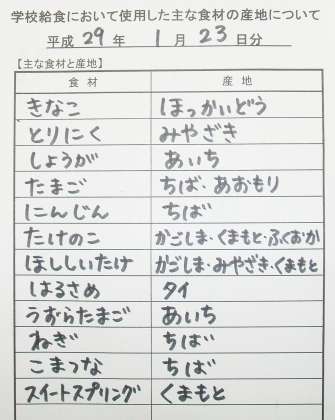 学校給食において使用した主な食材の産地について
平成 29 年 1 月 23 日分
【主な食材と産地】
食材 産地
きなこ ほっかいどう
とりにく みやざき
しょうが あいち
たまご ちば・あおもり
にんじん ちば
たけのこ かごしま・くまもと・ふくおか
ほししいたけ かごしま・みやざき・くまもと
はるさめ タイ
うずらたまご あいち
ねぎ ちば
こまつな ちば
スイートスプリング くまもと